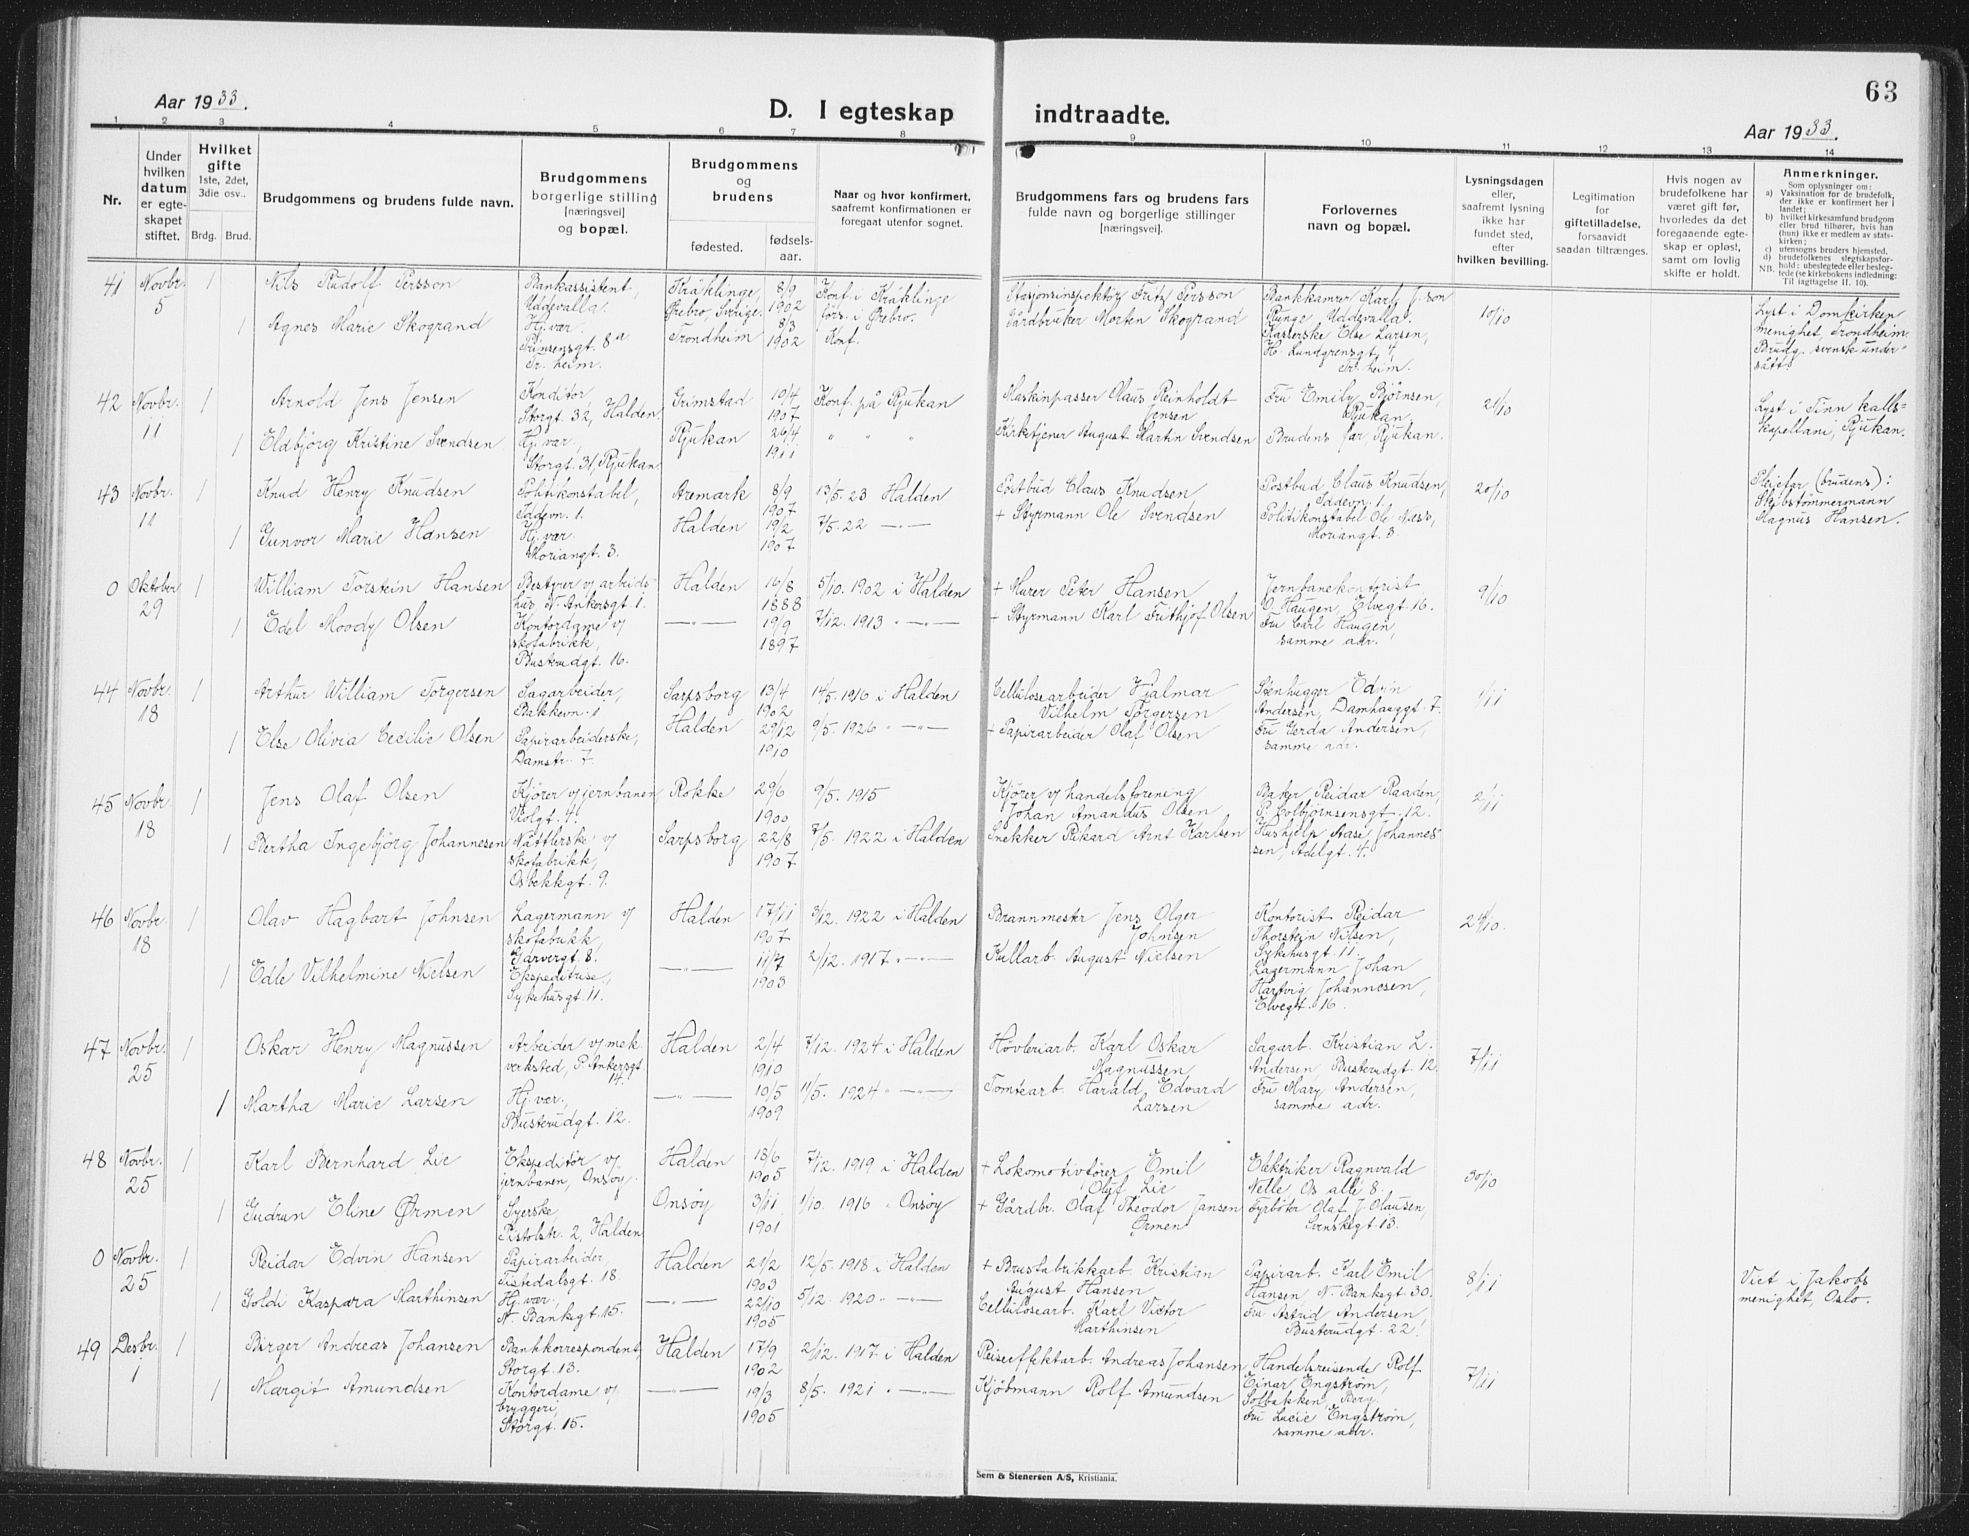 63
Aar 1933.
D. I egteskap indtraadte.
Aar 1933.
1 2 3 4 5 6 7 8 9 10 11 12 13 14
Nr.
Under hvilken datum er egteskapet stiftet.
Hvilket gifte 1ste, 2det, 3die osv..
Brdg. Brud.
Brudgommens og brudens fulde navn.
Brudgommens borgerlige stilling [næringsvei] og bopæl.
Brudgommens og brudens
fødested. fødselsaar.
Naar og hvor konfirmert, saafremt konfirmationen er foregaat utenfor sognet.
Brudgommens fars og brudens fars fulde navn og borgerlige stillinger [næringsvei].
Forlovernes navn og bopæl.
Lysningsdagen eller, saafremt lysning ikke har fundet sted, efter hvilken bevilling.
Legitimation for giftetilladelse, forsaavidt saadan tiltrænges.
Hvis nogen av brudefolkene har været gift før, hvorledes da det foregaaende egteskap er opløst, samt om lovlig skifte er holdt.
Anmerkninger.
Som oplysninger om:
a) Vaksination for de brudefolk, der ikke er konfirmert her i landet;
b) hvilket kirkesamfund brudgom eller brud tilhører, hvis han (hun) ikke er medlem av statskirken;
c) utensogns bruders hjemsted.
d) brudefolkenes slegtskapsforhold: ubeslegtede eller beslegtede (se kirkebokens indledning:
NB. Til iagttagelse II. 10).
41 Novbr. 5 1 Nils Rudolf Persson Bankassistent, Uddevalla. Kräklinge, Örebro, Sverige. 8/9 1902 Konf. i Kräklinge førs. i Örebro. Stasjonsinspektör Fritz Persson Bankkamrer Karl J:son Runge, Uddevalla. 10/10 Lyst i Domkirken menighet, Trondheim. Brudg. svensk undersått.
1 Agnes Marie Skogrand Hj. vær. Prinsensgt. 8a Tr.heim. Trondheim 8/3 1902 Konf. Gårdbruker Morten Skogrand Kasserske Else Larsen, H. Lundgrensgt. 4, Tr.heim.
42 Novbr. 11 1 Arnold Jens Jensen Konditor, Storgt. 32, Halden Grimstad 19/4 1907 Konf. på Rjukan Maskinpasser Claus Reinholdt Jensen Fru Emily Bjørnsen, Rjukan. 21/10 Lyst i Tinn kallskapellani, Rjukan.
1 Eldbjörg Kristine Svendsen Hj. vær, Storgt. 31, Rjukan Rjukan 26/4 1911 " " " Kirketjener August Martin Svendsen Brudens far, Rjukan.
43 Novbr. 11 1 Knud Henry Knudsen Politikonstabel, Iddevn. 1. Aremark 8/9 1907 13/5. 23 Halden Postbud Claus Knudsen Postbud Claus Knudsen, Iddevn. 1. 20/10 Pleiefar (brudens): Skibstømmermann Magnus Hansen.
1 Gunvor Marie Hansen Hj. vær. Moriangt. 3. Halden 19/2 1907 7/5. 22 —"— + Styrmann Ole Svendsen Politikonstabel Ole Næss, Moriangt. 3.
0 Oktober 29 1 William Torstein Hansen Bestyrer v/ arbeidshus, N. Ankersgt. 1. Halden 16/8 1888 5/10. 1902 i Halden + Murer Peter Hansen Jernbanekontorist O. Haugen, Elvegt. 16. 9/10
1 Edel Moody Olsen Kontordame v/ skofabrikk, Busterudgt. 16. —"— 19/9 1897 7/12. 1913 " —"— + Styrmann Karl Frithjof Olsen Fru Carl Haugen, samme adr.
44 Novbr. 18 1 Arthur William Torgersen Sagarbeider, Bakkevn. 1 Sarpsborg 13/4 1902 14/5. 1916 i Halden Cellulosearbeider Hjalmar Vilhelm Torgersen Stenhugger Edvin Andersen, Damhauggt. 7. 1/11
1 Else Olivia Cecilie Olsen Papirarbeiderske, Damstr. 7. Halden 29/12 1910 9/5. 1926 —"— + Papirarbeider Olaf Olsen Fru Gerda Andersen, samme adr.
45 Novbr. 18 1 Jens Olaf Olsen Kjører v/ jernbanen Violgt. 4. Rokke 29/6 1900 9/5. 1915 Kjører v/ handelsforening Johan Amandus Olsen Baker Reidar Raaden, P. Colbjørnsensgt. 12. 2/11
1 Bertha Ingebjörg Johannesen Nåttlerske v/ skofabrikk, Osbekkgt. 9. Sarpsborg 22/8 1907 7/5. 1922 i Halden Snekker Rikard Arnt Karlsen Hushjelp Aase Johannessen, Adelgt. 4.
46 Novbr. 18 1 Olav Hagbart Johnsen Lagermann v/ skofabrikk, Garvergt. 8. Halden 17/11 1907 3/12. 1922 i Halden Brannmester Jens Olger Johnsen Kontorist Reidar Thorstein Nilsen, Sykehusgt. 11. 24/10.
1 Edle Vilhelmine Nielsen Ekspeditrise, Sykehusgt. 11. —"— 11/7 1903 2/12. 1917 " —"— Kullarb. August Nielsen Lagermann Johan Hartvig Johannesen, Elvegt. 16.
47 Novbr. 25 1 Oskar Henry Magnussen Arbeider v/ mek. verksted, P. Ankersgt. 14. Halden 2/4 1910 7/12. 1924 i Halden Høvleriarb. Karl Oskar Magnussen Sagarb. Kristian L. Andersen, Busterudgt. 12. 7/11
1 Martha Marie Larsen Hj. vær., Busterudgt. 12. —"— 10/5 1909 11/5. 1924 " —"— Tomtearb. Harald Edvard Larsen Fru Mary Andersen, samme adr.
48 Novbr. 25 1 Karl Bernhard Lie Ekspeditør v/ jernbanen, Onsøy. Halden 18/6 1905 7/12. 1919 i Halden + Lokomotivfører Emil Oluf Lie Elektriker Ragnvald Nelle, Os alle 8. 30/10
1 Gudrun Eline Ørmen Syerske, Pistolstr. 2, Halden Onsøy 3/11 1901 1/10. 1916 " Onsøy + Gårdbr. Olaf Theodor Jansen Ørmen Fyrbøter Olaf J. Olausen, Svenskegt. 13.
0 Novbr. 25 1 Reidar Edvin Hansen Papirarbeider, Tistedalsgt. 18. Halden 21/2 1903 12/5. 1918 i Halden + Brusfabrikkarb. Kristian August Hansen Papirarb. Karl Emil Hansen, N. Bankegt. 30. 8/11 Viet i Jakobs menighet, Oslo.
1 Goldi Kaspara Marthinsen Hj. vær, N. Bankegt. 15. —"— 22/10 1905 5/12. 1920 " —"— Cellulosearb. Karl Victor Marthinsen Fru Astrid Andersen, Busterudgt. 22.
49 Desbr. 1 1 Birger Andreas Johansen Bankkorrespondent, Storgt. 13. Halden 17/9 1902 2/12. 1917 i Halden Reiseeffektarb. Andreas Johansen Handelsreisende Rolf Einar Engstrøm, Solbakken, Berg. 7/11
1 Margit Amundsen Kontordame v/ bryggeri, Storgt. 15. —"— 19/3 1905 8/5. 1921 " —"— Kjøbmann Rolf Amundsen Fru Lucie Engstrøm, samme adr.
Sem & Stenersen A/S, Kristiania.